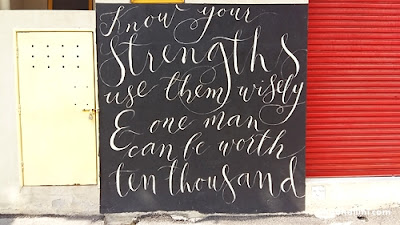 Know your
strengths
use them wisely
& one man
can be worth
ten thousand